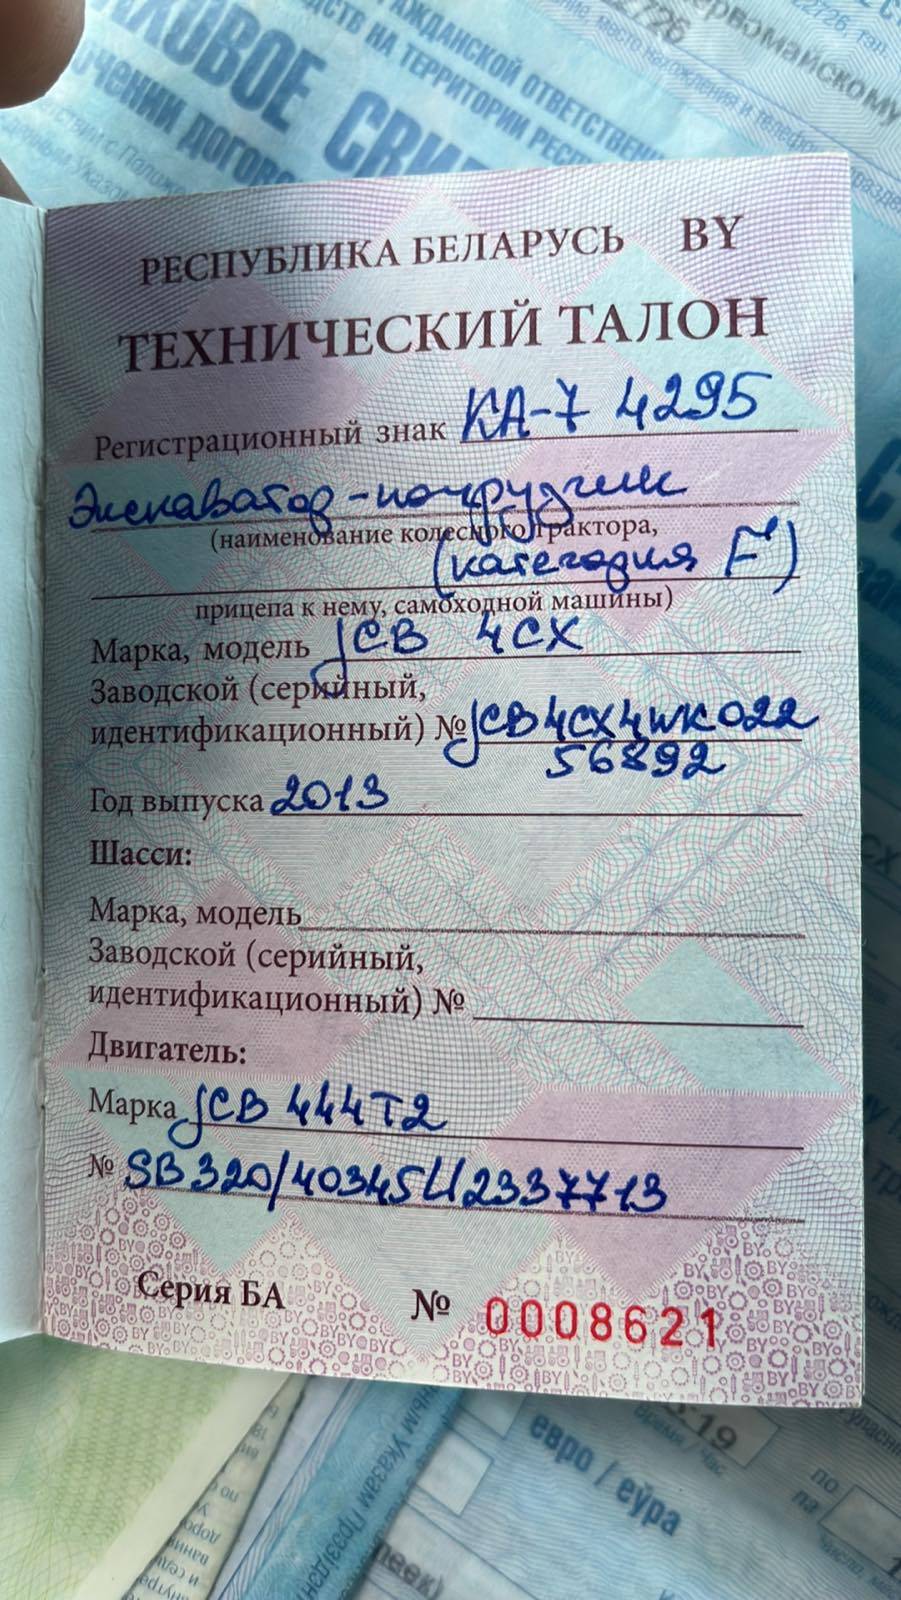 АЖДАНСКОЙ ОТВЕТСТВЕН
НА ТЕРРИТОРИИ РЕСП
ХОВОЕ СВИ
ДОГОВ
ервомайскому
РЕСПУБЛИКА БЕЛАРУСЬ BY
ТЕХНИЧЕСКИЙ ТАЛОН
Регистрационный знак КА-7 4295
Экскаватор-погрузчик
(наименование колесного трактора,
(категория F)
прицепа к нему, самоходной машины)
Марка, модель JCB 4CX
Заводской (серийный,
идентификационный) № JCB4CX4WK022
56892
Год выпуска 2013
Шасси:
Марка, модель
Заводской (серийный,
идентификационный) №
Двигатель:
Марка JCB 444T2
№ SB320/40345U2337713
Серия БА № 0008621
евро / еўра
по
па